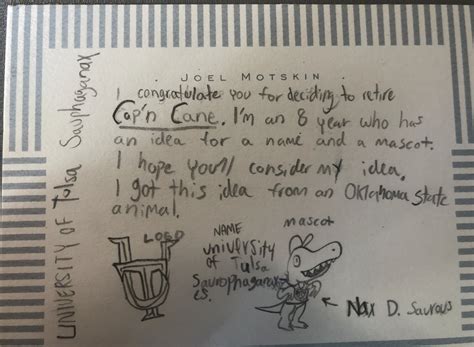 UNIVERSITY OF Tulsa Sauphaganax
JOEL MOTSKIN
I congratulate you for deciding to retire
Cap'n Cane. I'm an 8 year who has
an idea for a name and a mascot.
I hope you'll consider my idea.
I got this idea from an Oklahoma state
animal.
LOGO
TU
NAME
University
of Tulsa
Saurophaganax
es.
mascot
Nax D. Saurous